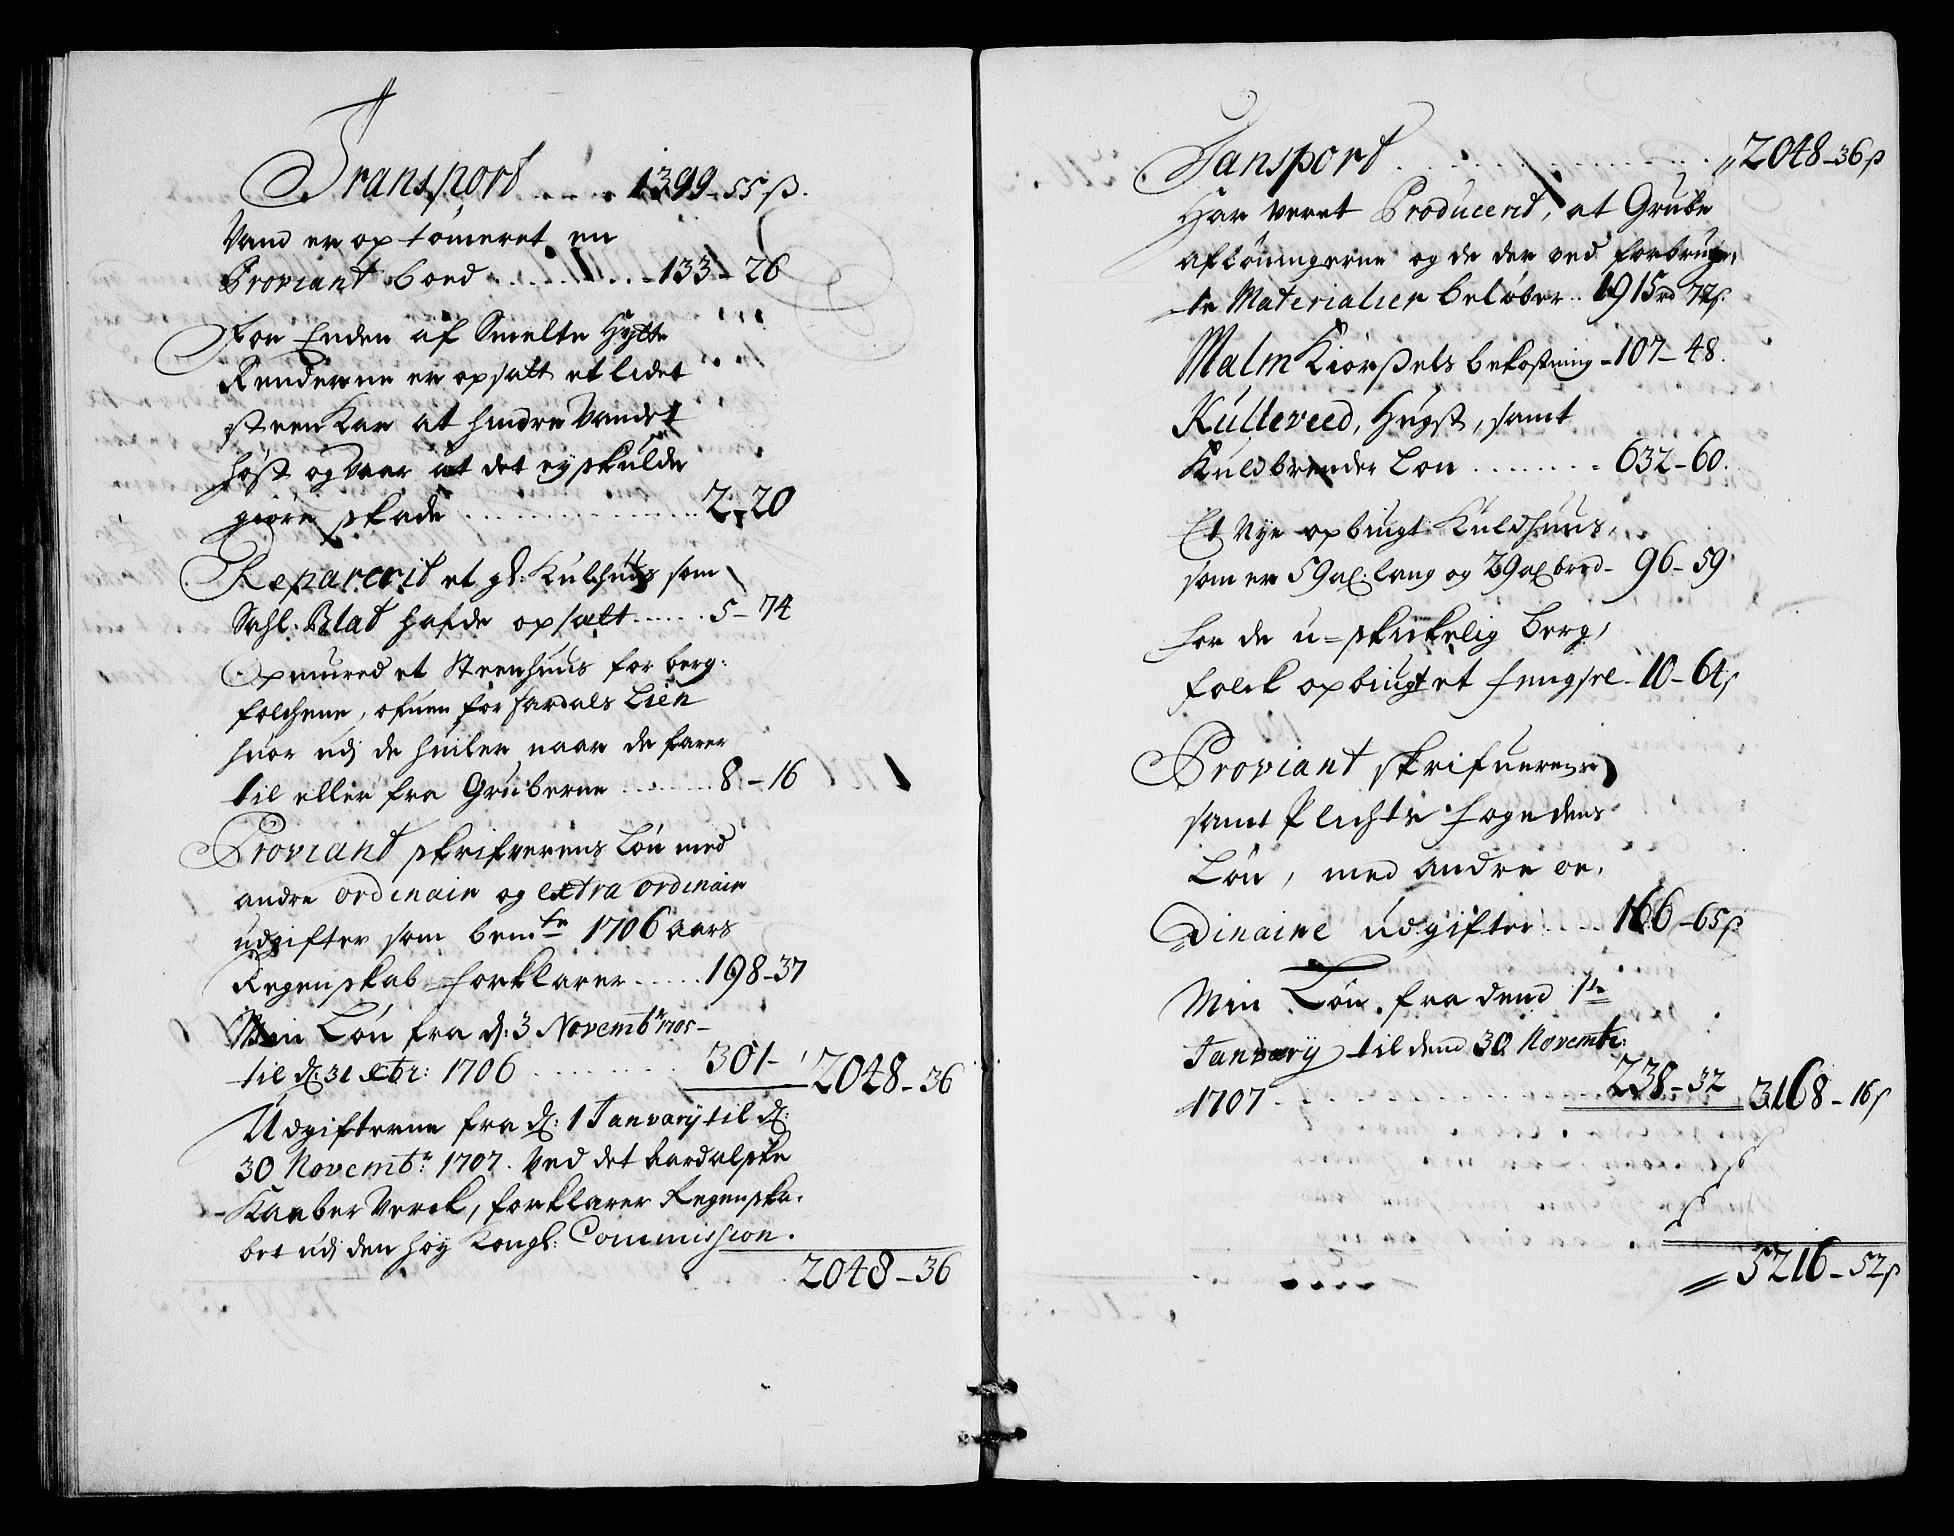 Transport ..... 1399-55ß.
Vand er optömeret en
Proviant boed ......... 133-26
For Enden af Smelte Hytte
Renderne er opsatt et lidet
steen Kar at hindre Vandet
höst og Vaar at det ey skulde
giöre skade ............... 2-20
Repareret et gl: Kulhuus som
Sahl: Blat hafde opsatt ...... 5-74
Opmured et Steenhuus for berg:
folchene, ofuen for Lien
huor udj de huiler naar de farer
til eller fra Gruberne ....... 8-16
Proviant skrifverens Lön med
andre ordinair og extra ordinair
udgifter som bem.te 1706 aars
Regenskab forklarer ..... 198-37
Min Lön fra d: 3 Novembr 1705-
til d: 31 Xbr: 1706 ........ 301- 2048-36
Udgifterne fra d: 1 Janvarij til d:
30 Novembr: 1707. Ved det
Kaaber Verck, forklarer Regenska-
bet udj den höy Kongl: Commission.
2048-36
Transport ............ 2048-36ß
Har veret Produceret, at Grube
aflöningerne og de der ved forbrug-
te Materialier belöber .. 1915rd 72ß.
Malm Kiörßels bekostning - 107-48.
Kulleveed, Hugst, samt
Kuldbrender Lön ........ 632-60.
Et Nye opbiugt Kuldhuus,
som er 59 al: lang og 29 al bred - 96-59
For de u-skickelig Berg,
folck opbiugt et fengsel - 10-64ß
Proviant skrifuerens
samt Plichts fogedens
Lön, med andre or,
dinaire udgifter .... 166-65ß
Min Lön, fra dend 1te
Janvarij til dend 30 Novembr:
1707 ............... 238-32 3168-16ß
5216-52ß